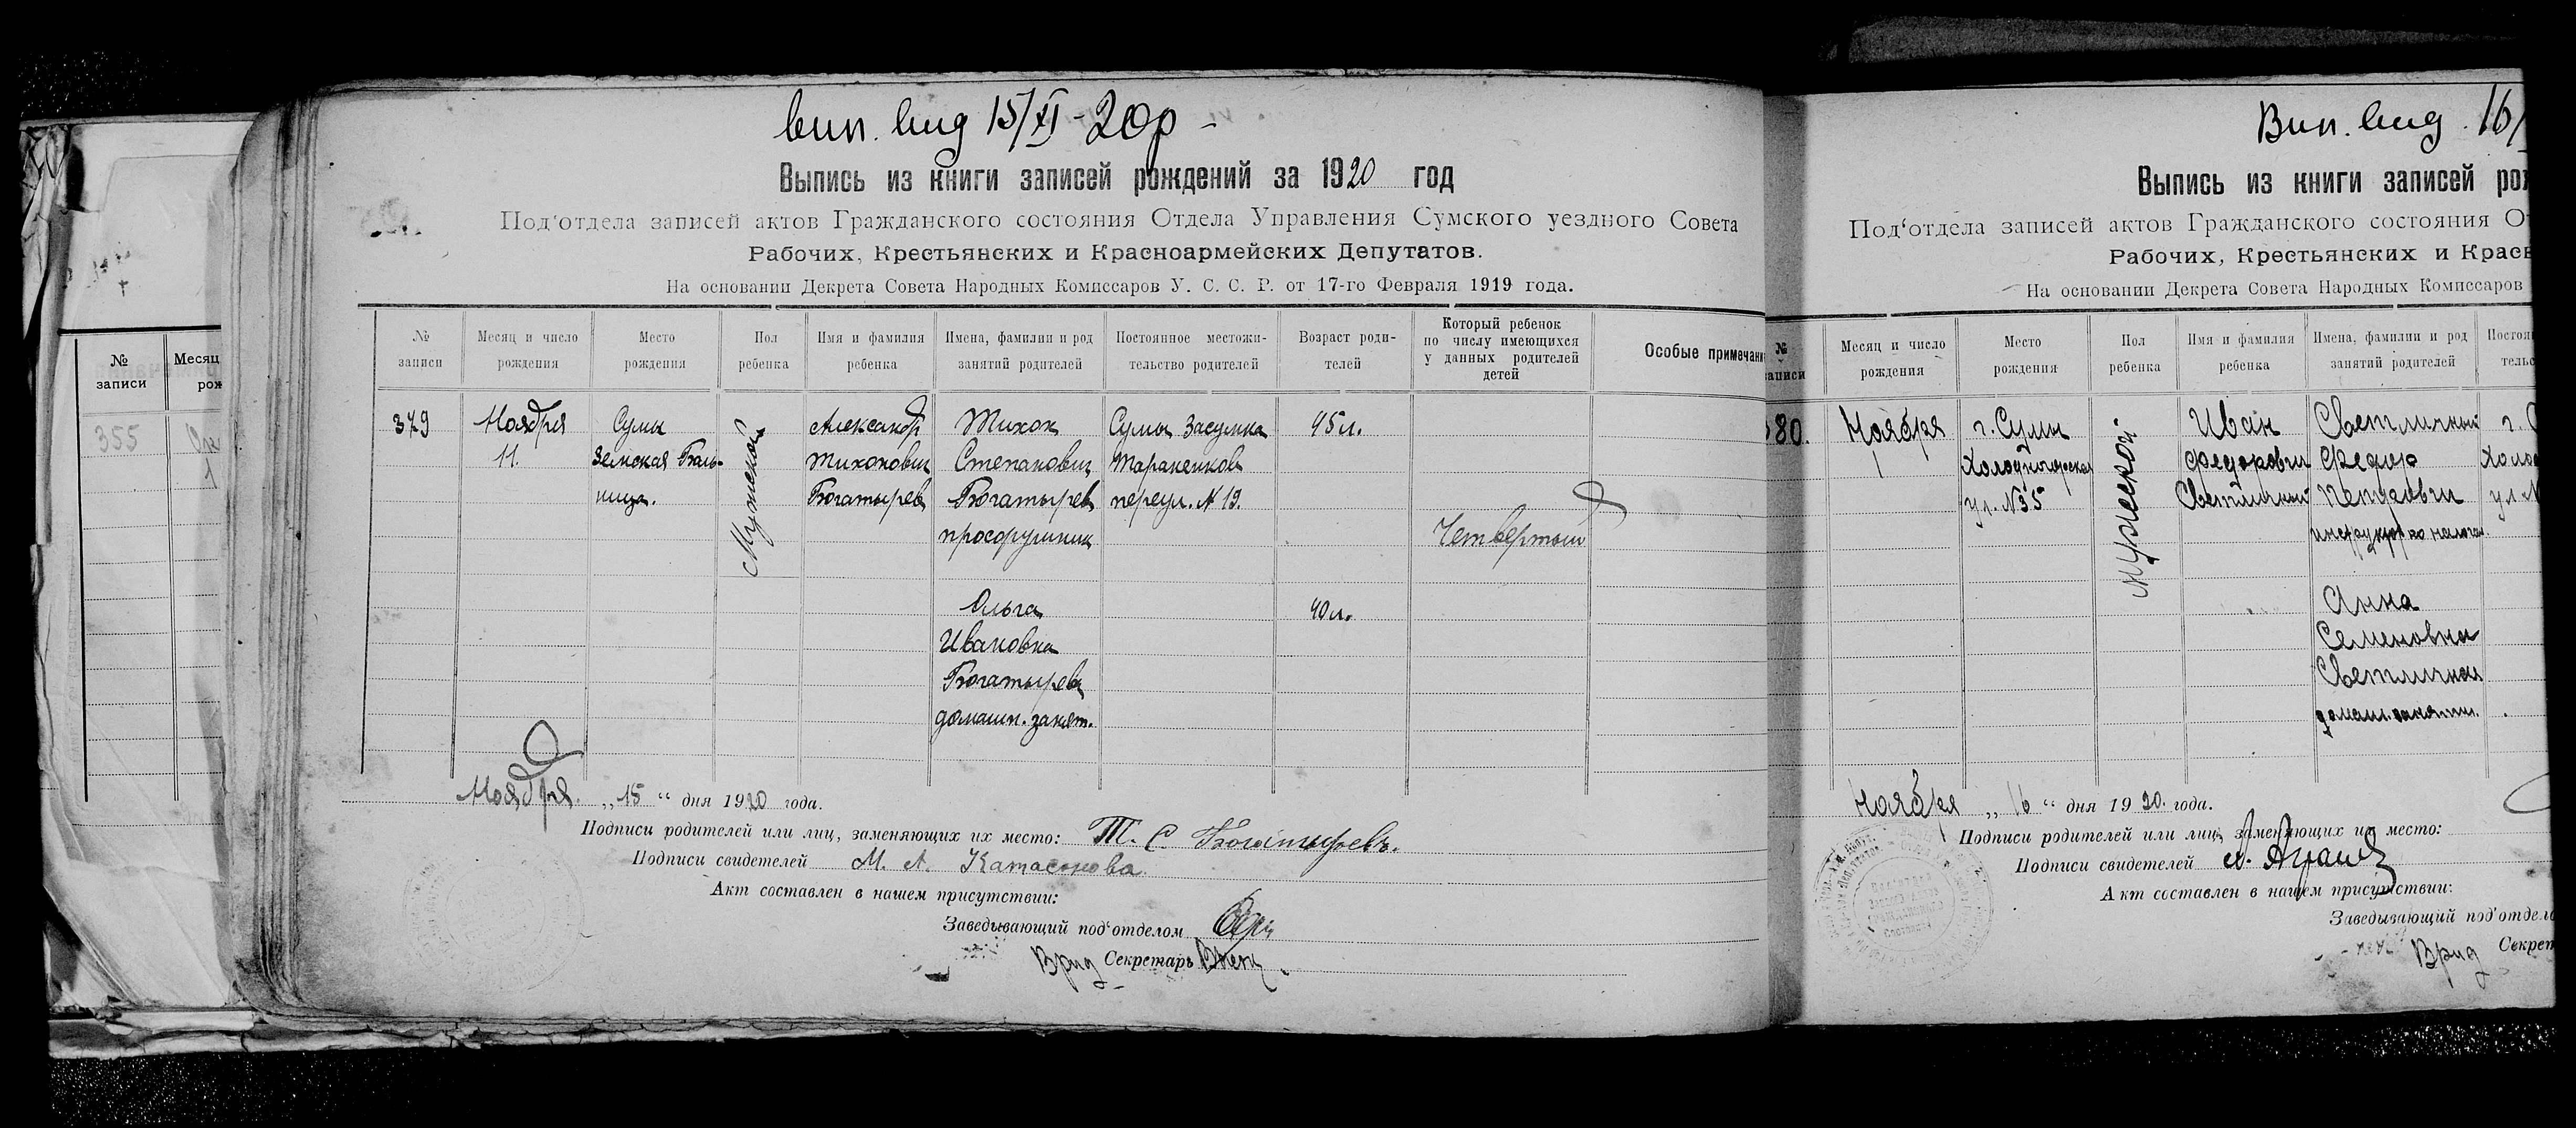 № записи
Месяц
рож
355
1
вип. вид 15/XI - 20р -
Выпись из книги записей рождений за 1920 год
Под‘отдела записей актов Гражданского состояния Отдела Управления Сумского уездного Совета
Рабочих, Крестьянских и Красноармейских Депутатов.
На основании Декрета Совета Народных Комиссаров У. С. С. Р. от 17-го Февраля 1919 года.
№ записи
Месяц и число рождения
Место рождения
Пол ребенка
Имя и фамилия ребенка
Имена, фамилии и род занятий родителей
Постоянное местожи-
тельство родителей
Возраст роди-
телей
Который ребенок
по числу имеющихся
у данных родителей
детей
Особые примечани
379
Ноября
11.
Сумы
Земская Боль-
ница.
Мужеской
Александр
Тихонович
Богатырев
Тихон
Степанович
Богатырев
Сумы Засумка
Тараненков
переул. № 19.
45 л.
Четвертый
Ольга
Ивановна
Богатырева
домашн. занят.
40 л.
Ноября „15“ дня 1920 года.
Подписи родителей или лиц, заменяющих их место: Т. С. Богатыревъ.
Подписи свидетелей М. А. Катасонова
Акт составлен в нашем присутствии:
Заведывающий под‘отделом
Врид Секретарь
Вип. вид. 16/
Выпись из книги записей рож
Под‘отдела записей актов Гражданского состояния От
Рабочих, Крестьянских и Красн
На основании Декрета Совета Народных Комиссаров
№
записи
Месяц и число рождения
Место рождения
Пол ребенка
Имя и фамилия ребенка
Имена, фамилии и род занятий родителей
Постоян
тельс
80.
Ноября
1
г. Сумы
Холодногорская
ул. № 35
Мужеской
Иван
Федорович
Светличный
Светличный
Федор
Петрович
г. С
Холод
ул. №
Анна
Семеновна
Светличная
домаш. занятии.
Ноября „16“ дня 1920. года.
Подписи родителей или лиц, заменяющих их место:
Подписи свидетелей
Акт составлен в нашем присутствии:
Заведывающий под‘отдело
Врид Секрет